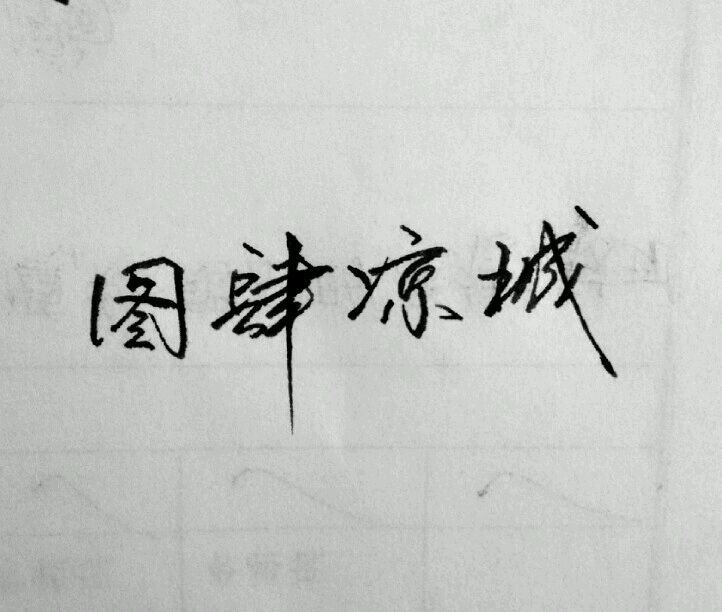 图肆凉城